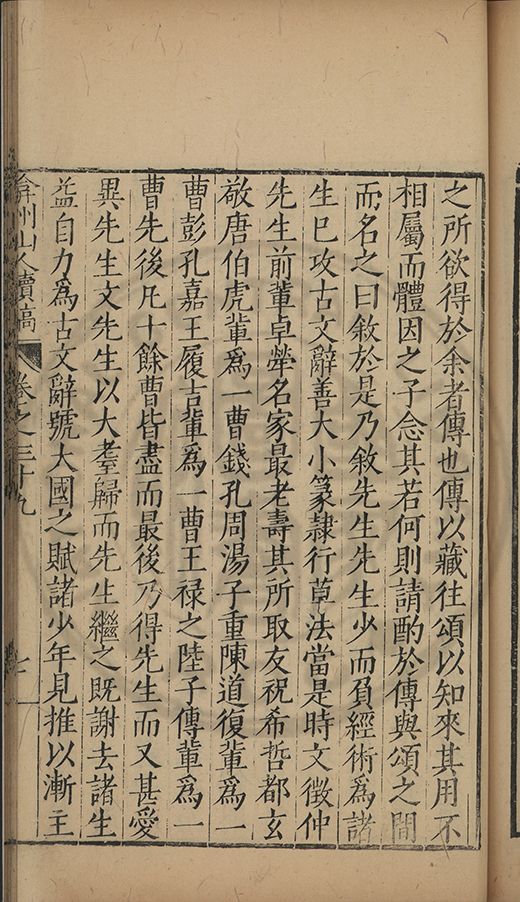 之所欲得於余者傳也傳以藏往頌以知來其用不
相屬而體因之子念其若何則請酌於傳與頌之間
而名之曰敘於是乃敘先生先生少而負經術為諸
生已攻古文辭善大小篆隸行草法當是時文徵仲
先生前輩卓犖名家最老壽其所取友祝希哲都玄
敬唐伯虎輩為一曹錢孔周湯子重陳道復輩為一
曹彭孔嘉王履吉輩為一曹王祿之陸子傳輩為一
曹先後凡十餘曹皆盡而最後乃得先生而又甚愛
異先生文先生以大耋歸而先生繼之既謝去諸生
益自力為古文辭號大國之賦諸少年見推以漸主
弇州山人續稿 卷之三十九 七